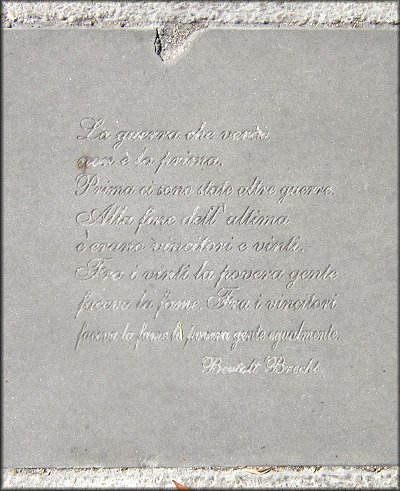 La guerra che verrà
non è la prima.
Prima ci sono state altre guerre.
Alla fine dell'ultima
c'erano vincitori e vinti.
Fra i vinti la povera gente
faceva la fame. Fra i vincitori
faceva la fame la povera gente egualmente.
Bertolt Brecht